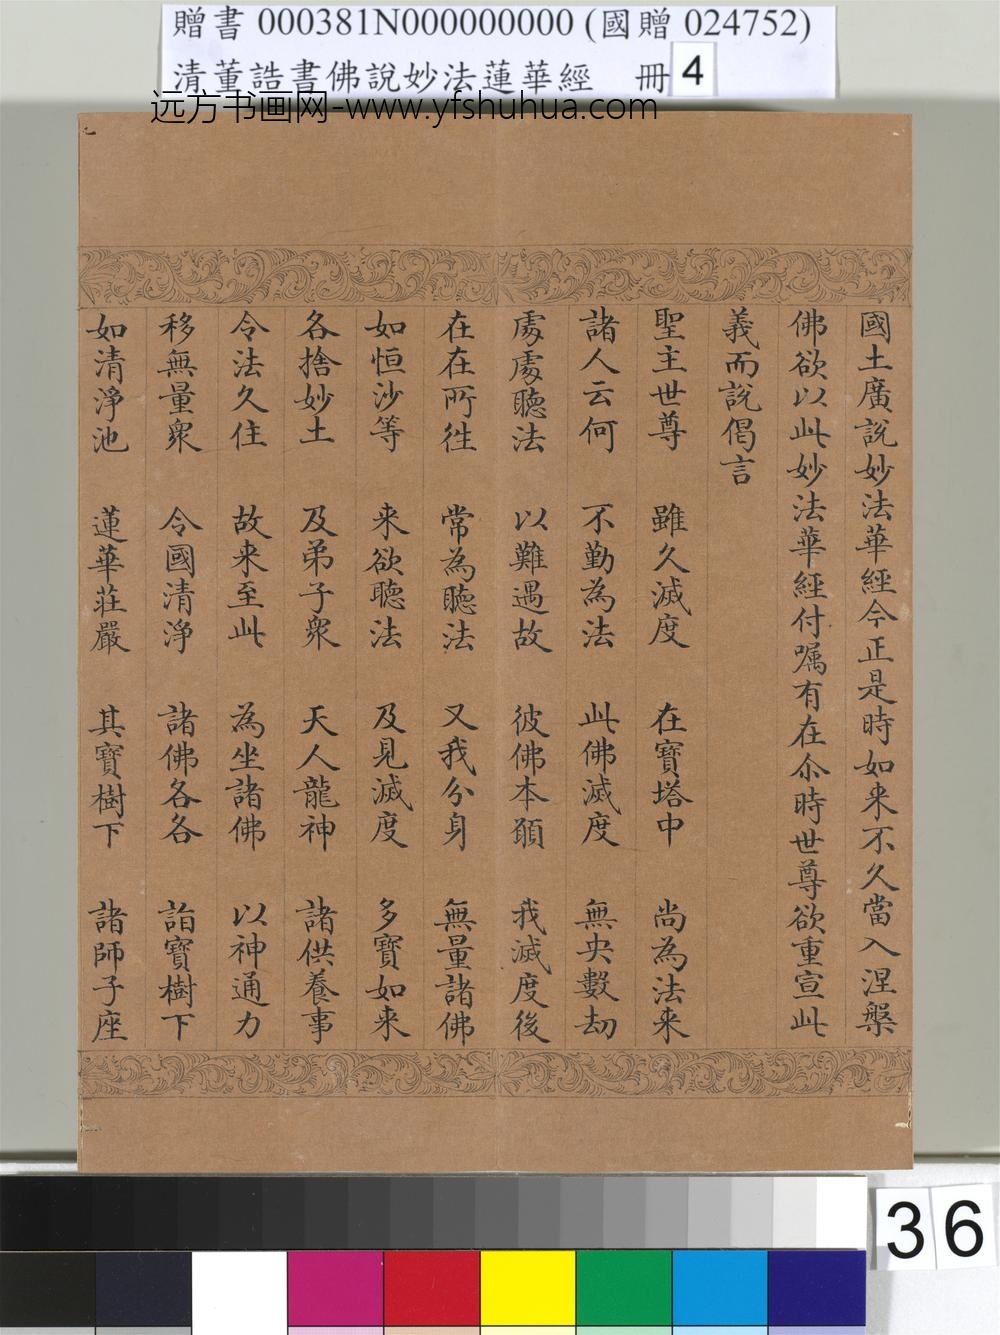 贈書 000381N000000000 (國贈 024752)
清董誥書佛說妙法蓮華經 冊 4
远方书画网-www.yfshuhua.com
國土廣說妙法華經今正是時如来不久當入涅槃
佛欲以此妙法華經付嘱有在尒時世尊欲重宣此
義而說偈言
聖主世尊 雖久滅度 在寶塔中 尚為法来
諸人云何 不勤為法 此佛滅度 無央數劫
處處聽法 以難遇故 彼佛本願 我滅度後
在在所往 常為聽法 又我分身 無量諸佛
如恒沙等 来欲聽法 及見滅度 多寶如来
各捨妙土 及弟子衆 天人龍神 諸供養事
令法久住 故来至此 為坐諸佛 以神通力
移無量衆 令國清淨 諸佛各各 詣寶樹下
如清淨池 蓮華莊嚴 其寶樹下 諸師子座
36